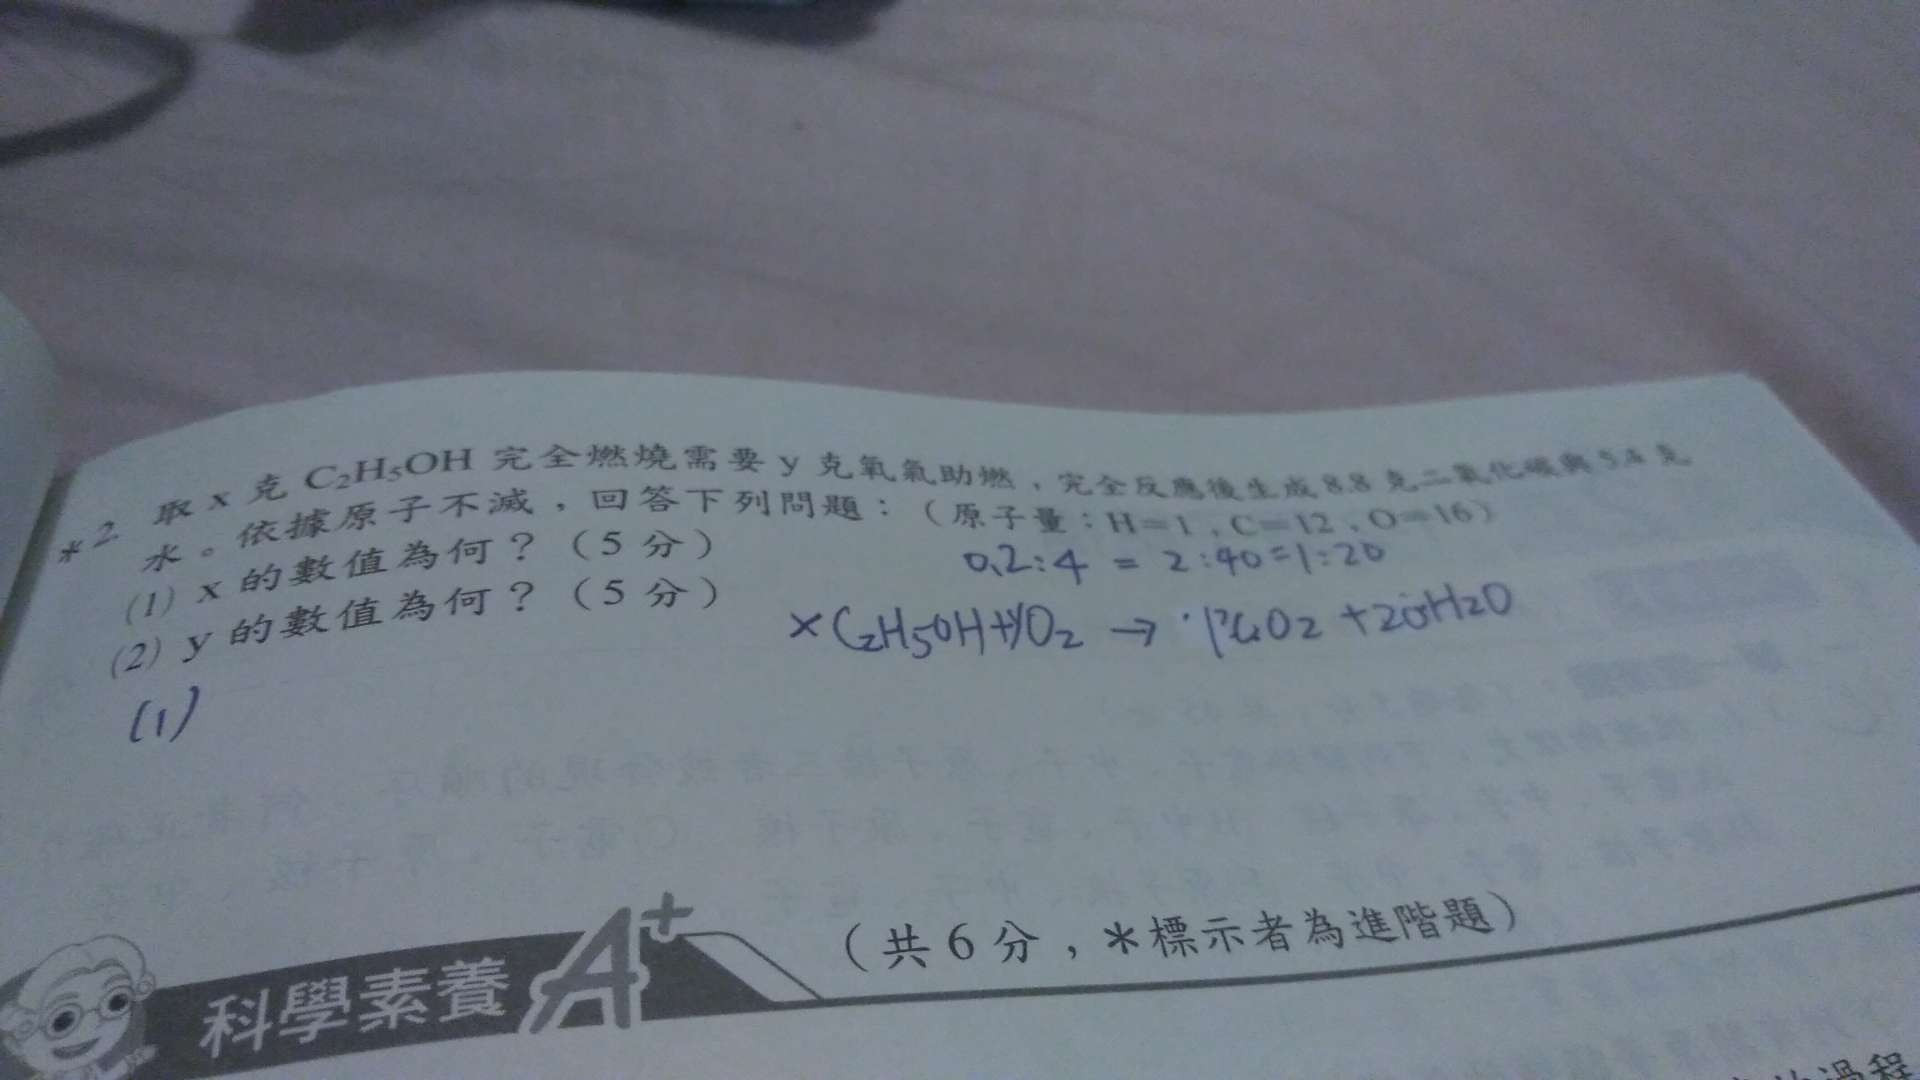 *2. 取 x 克 C₂H₅OH 完全燃燒需要 y 克氧氣助燃,完全反應後生成 8.8 克二氧化碳與 5.4 克
水。依據原子不滅,回答下列問題:(原子量:H=1,C=12,O=16)
(1) x 的數值為何?(5 分)
0.2:4 = 2:40=1:20
(2) y 的數值為何?(5 分)
xC₂H₅OH+yO₂ → CO₂ +20H₂O
(1)
科學素養 A⁺ (共 6 分,*標示者為進階題)